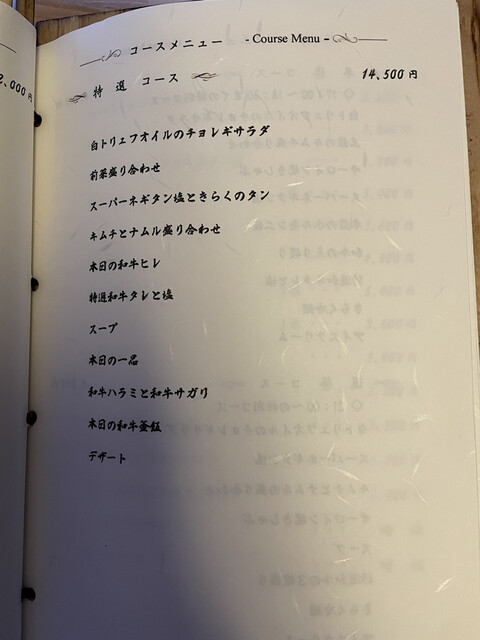 2,000円
コースメニュー - Course Menu -
特選 コース 14,500円
白トリュフオイルのチョレギサラダ
前菜盛り合わせ
スーパーネギタン塩ときらくのタン
キムチとナムル盛り合わせ
本日の和牛ヒレ
特選和牛タレと塩
スープ
本日の一品
和牛ハラミと和牛サガリ
本日の和牛釜飯
デザート